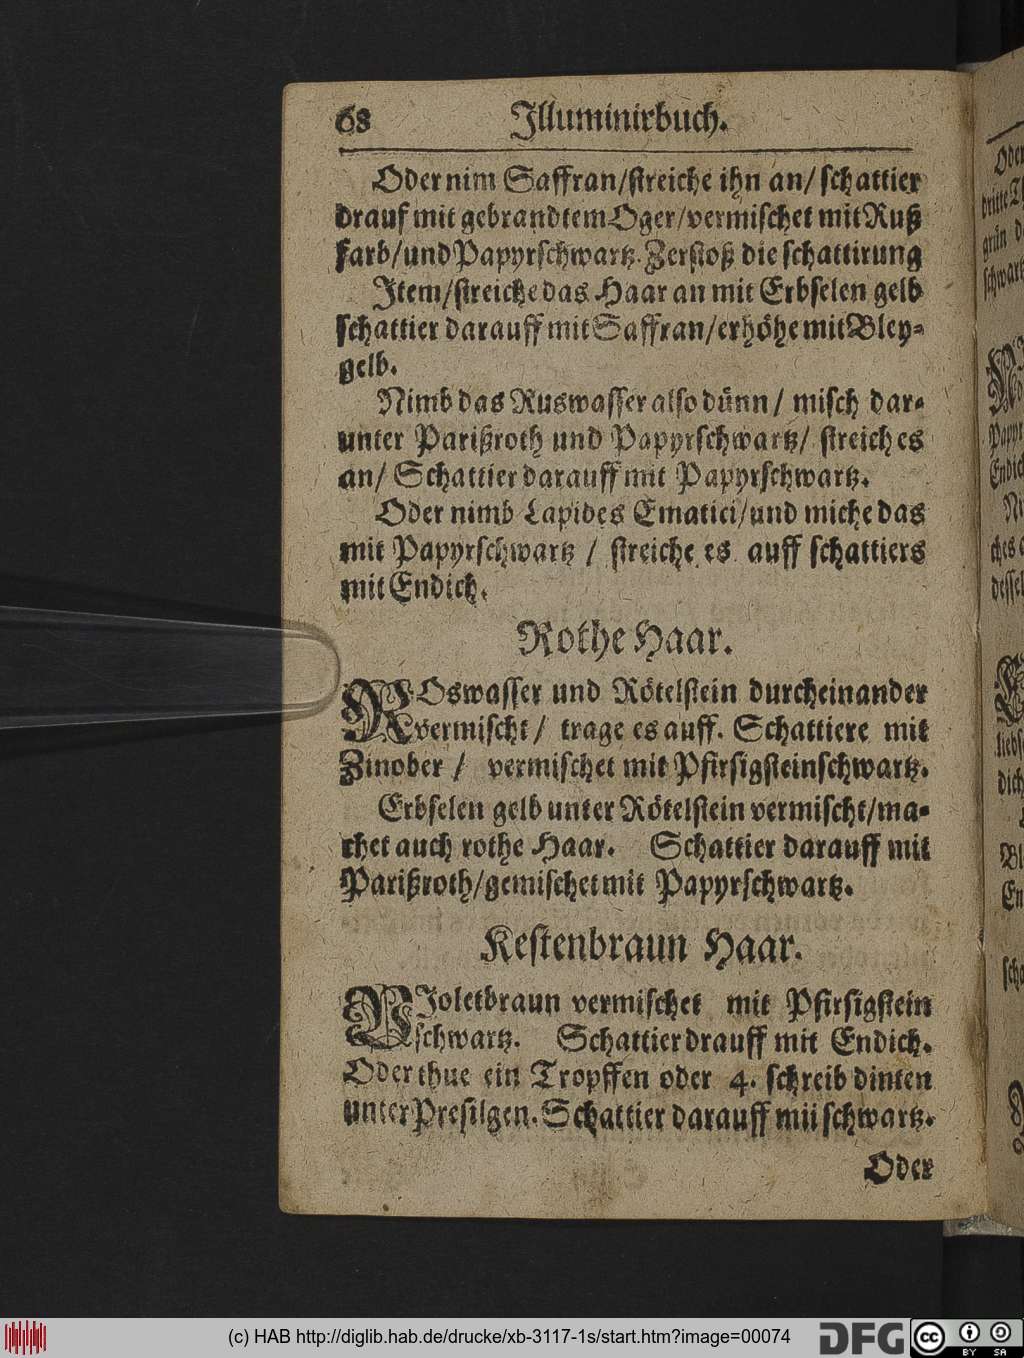 68 Illuminirbuch.
Oder nim Saffran/streiche ihn an/ schattier
drauf mit gebrandtem Oger/vermischet mit Ruß
farb/und Papyrschwartz. Zerstoß die schattirung
Item/streiche das Haar an mit Erbselen gelb
schattier darauff mit Saffran/erhöhe mit Bley-
gelb.
Nimb das Ruswasser also dünn/ misch dar-
unter Parißroth und Papyrschwartz/ streich es
an/ Schattier darauff mit Papyrschwartz.
Oder nimb Lapides Ematici/und miche das
mit Papyrschwartz / streiche es auff schattiers
mit Endich.
Rothe Haar.
ROswasser und Rötelstein durcheinander
vermischt/ trage es auff. Schattiere mit
Zinober / vermischet mit Pfirsigsteinschwartz.
Erbselen gelb unter Rötelstein vermischt/ma-
chet auch rothe Haar. Schattier darauff mit
Parißroth/gemischet mit Papyrschwartz.
Kestenbraun Haar.
VIoletbraun vermischet mit Pfirsigstein
schwartz. Schattier drauff mit Endich.
Oder thue ein Tropffen oder 4. schreib dinten
unter Presilgen. Schattier darauff mii schwartz.
Oder
(c) HAB http://diglib.hab.de/drucke/xb-3117-1s/start.htm?image=00074
DFG
cc
BY SA